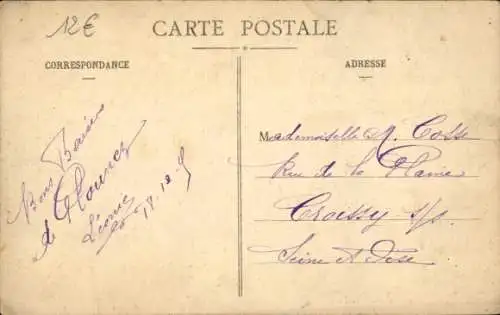 12€
CARTE POSTALE
CORRESPONDANCE
ADRESSE
Bons Baisers
de
Léonie
18.12.
Mademoiselle M. Cosse
Rue de la Plaine
Croissy s/s
Seine et Oise